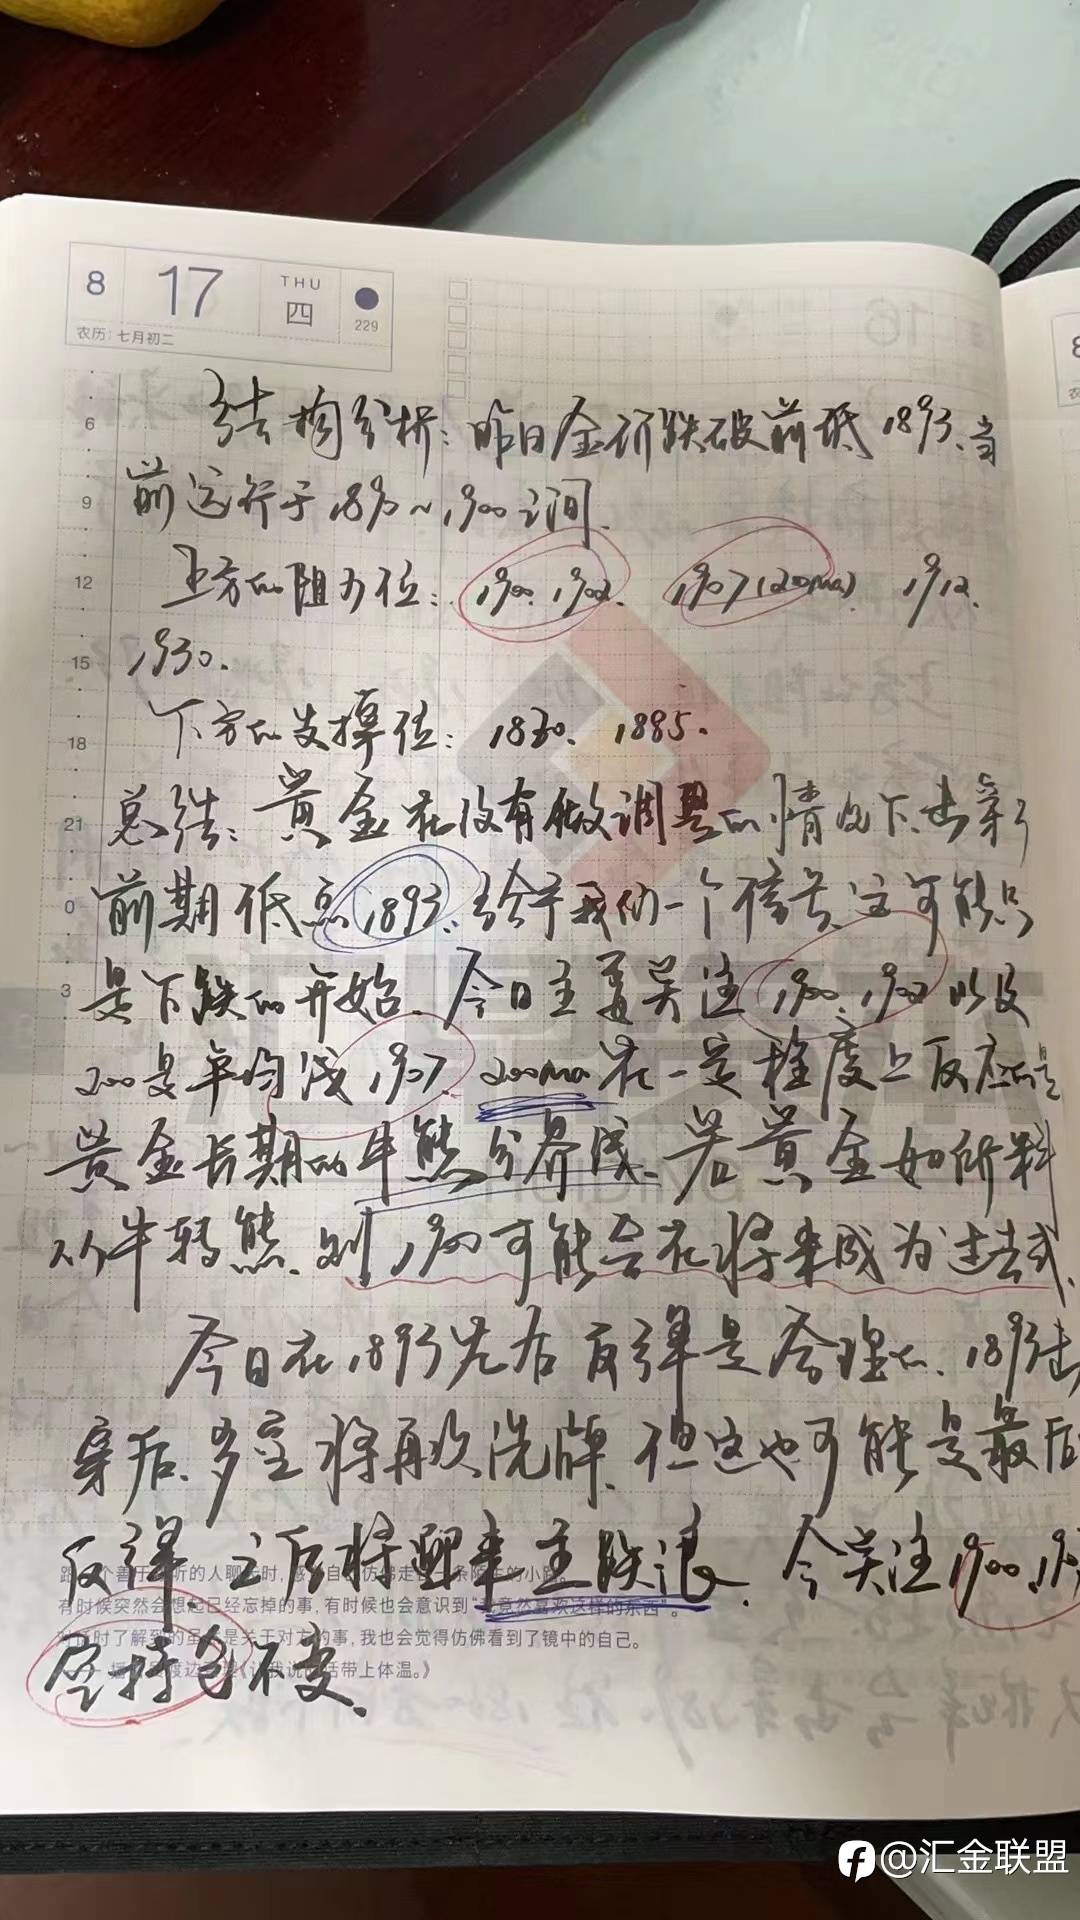 8 17 THU 四 229
农历:七月初二
6
9
12
15
18
21
0
3
结构分析:昨日金价跌破前低1893、当
前运行于1890~1900之间.
上方的阻力位:1900、1902、1907(200ma)、1912、
1930.
下方的支撑位:1880、1885.
总结:黄金在没有做调整的情况下、击穿了
前期低点1893、给予我们一个信号、这可能只
是下跌的开始、今日主要关注1900、1902以及
200是平均线1907、200ma在一定程度上反应的是
黄金长期的牛熊分界线、若黄金如所料
从牛转熊、则1900可能会在将来成为过去式、
今日在1893先后反弹是合理的、1893击
穿后、多空将再次洗牌、但这也可能是最后
反弹、之后将迎来主跌浪、今关注1900、
空持仓不变、
有时候突然会想起已经忘掉的事,有时候也会意识到“竟然喜欢这样的东西”。
对话时了解到的虽是关于对方的事,我也会觉得仿佛看到了镜中的自己。
@汇金联盟